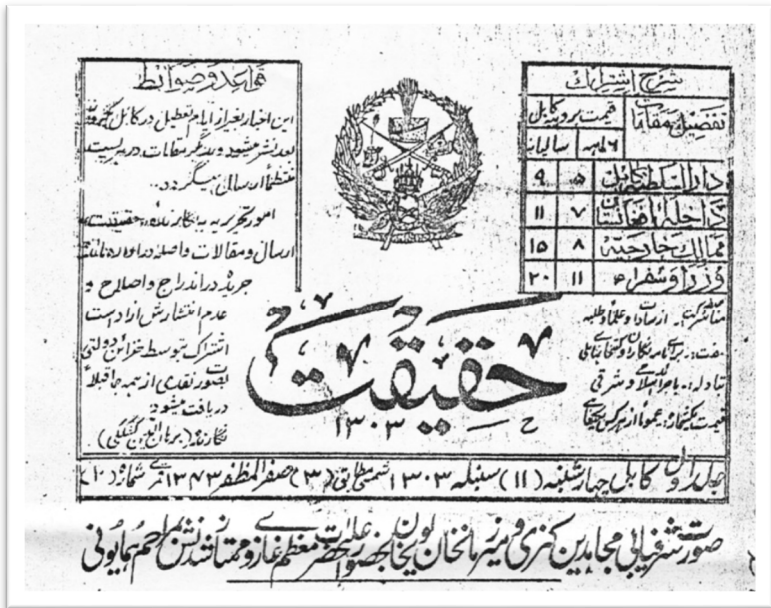 شرح اشتراک
تفصیل مقامات
قیمت بروپیه کابل
۶ ماهه سالیانه
دارالسلطنه کابل ۵ ۹
داخله افغانستان ۷ ۱۱
ممالک خارجیه ۸ ۱۵
وزرا و سفراء ۱۱ ۲۰
از سادات و علما و طلبه
تبادله: با جراید اسلامی و شرقی
قواعد و ضوابط
این اخبار بغیر از ایام تعطیل در کابل
منتظماً ارسال میگردد..
امور تحریریه به نگارنده «حقیقت»
ارسال و مقالات واصله در اداره مانند
جریده در اندراج و اصلاح و
عدم انتشارش آزاد است
اشتراک بتوسط خزاین دولتی
بصورت نقدی از همه جا قبلاً
دریافت میشود:
نگارنده (برهان الدین کشککی)
حقیقت
۱۳۰۳
جلد اول کابل چهارشنبه (۱۱) سنبله ۱۳۰۳ شمسی مطابق (۳) صفر المظفر ۱۳۴۳ قمری شماره (۲)
صورت شرفیابی مجاهدین کنری و میرزمانخان لوی خان بحضور اعلیحضرت معظم غازی و ممتاز شدنش بمراحم همایونی